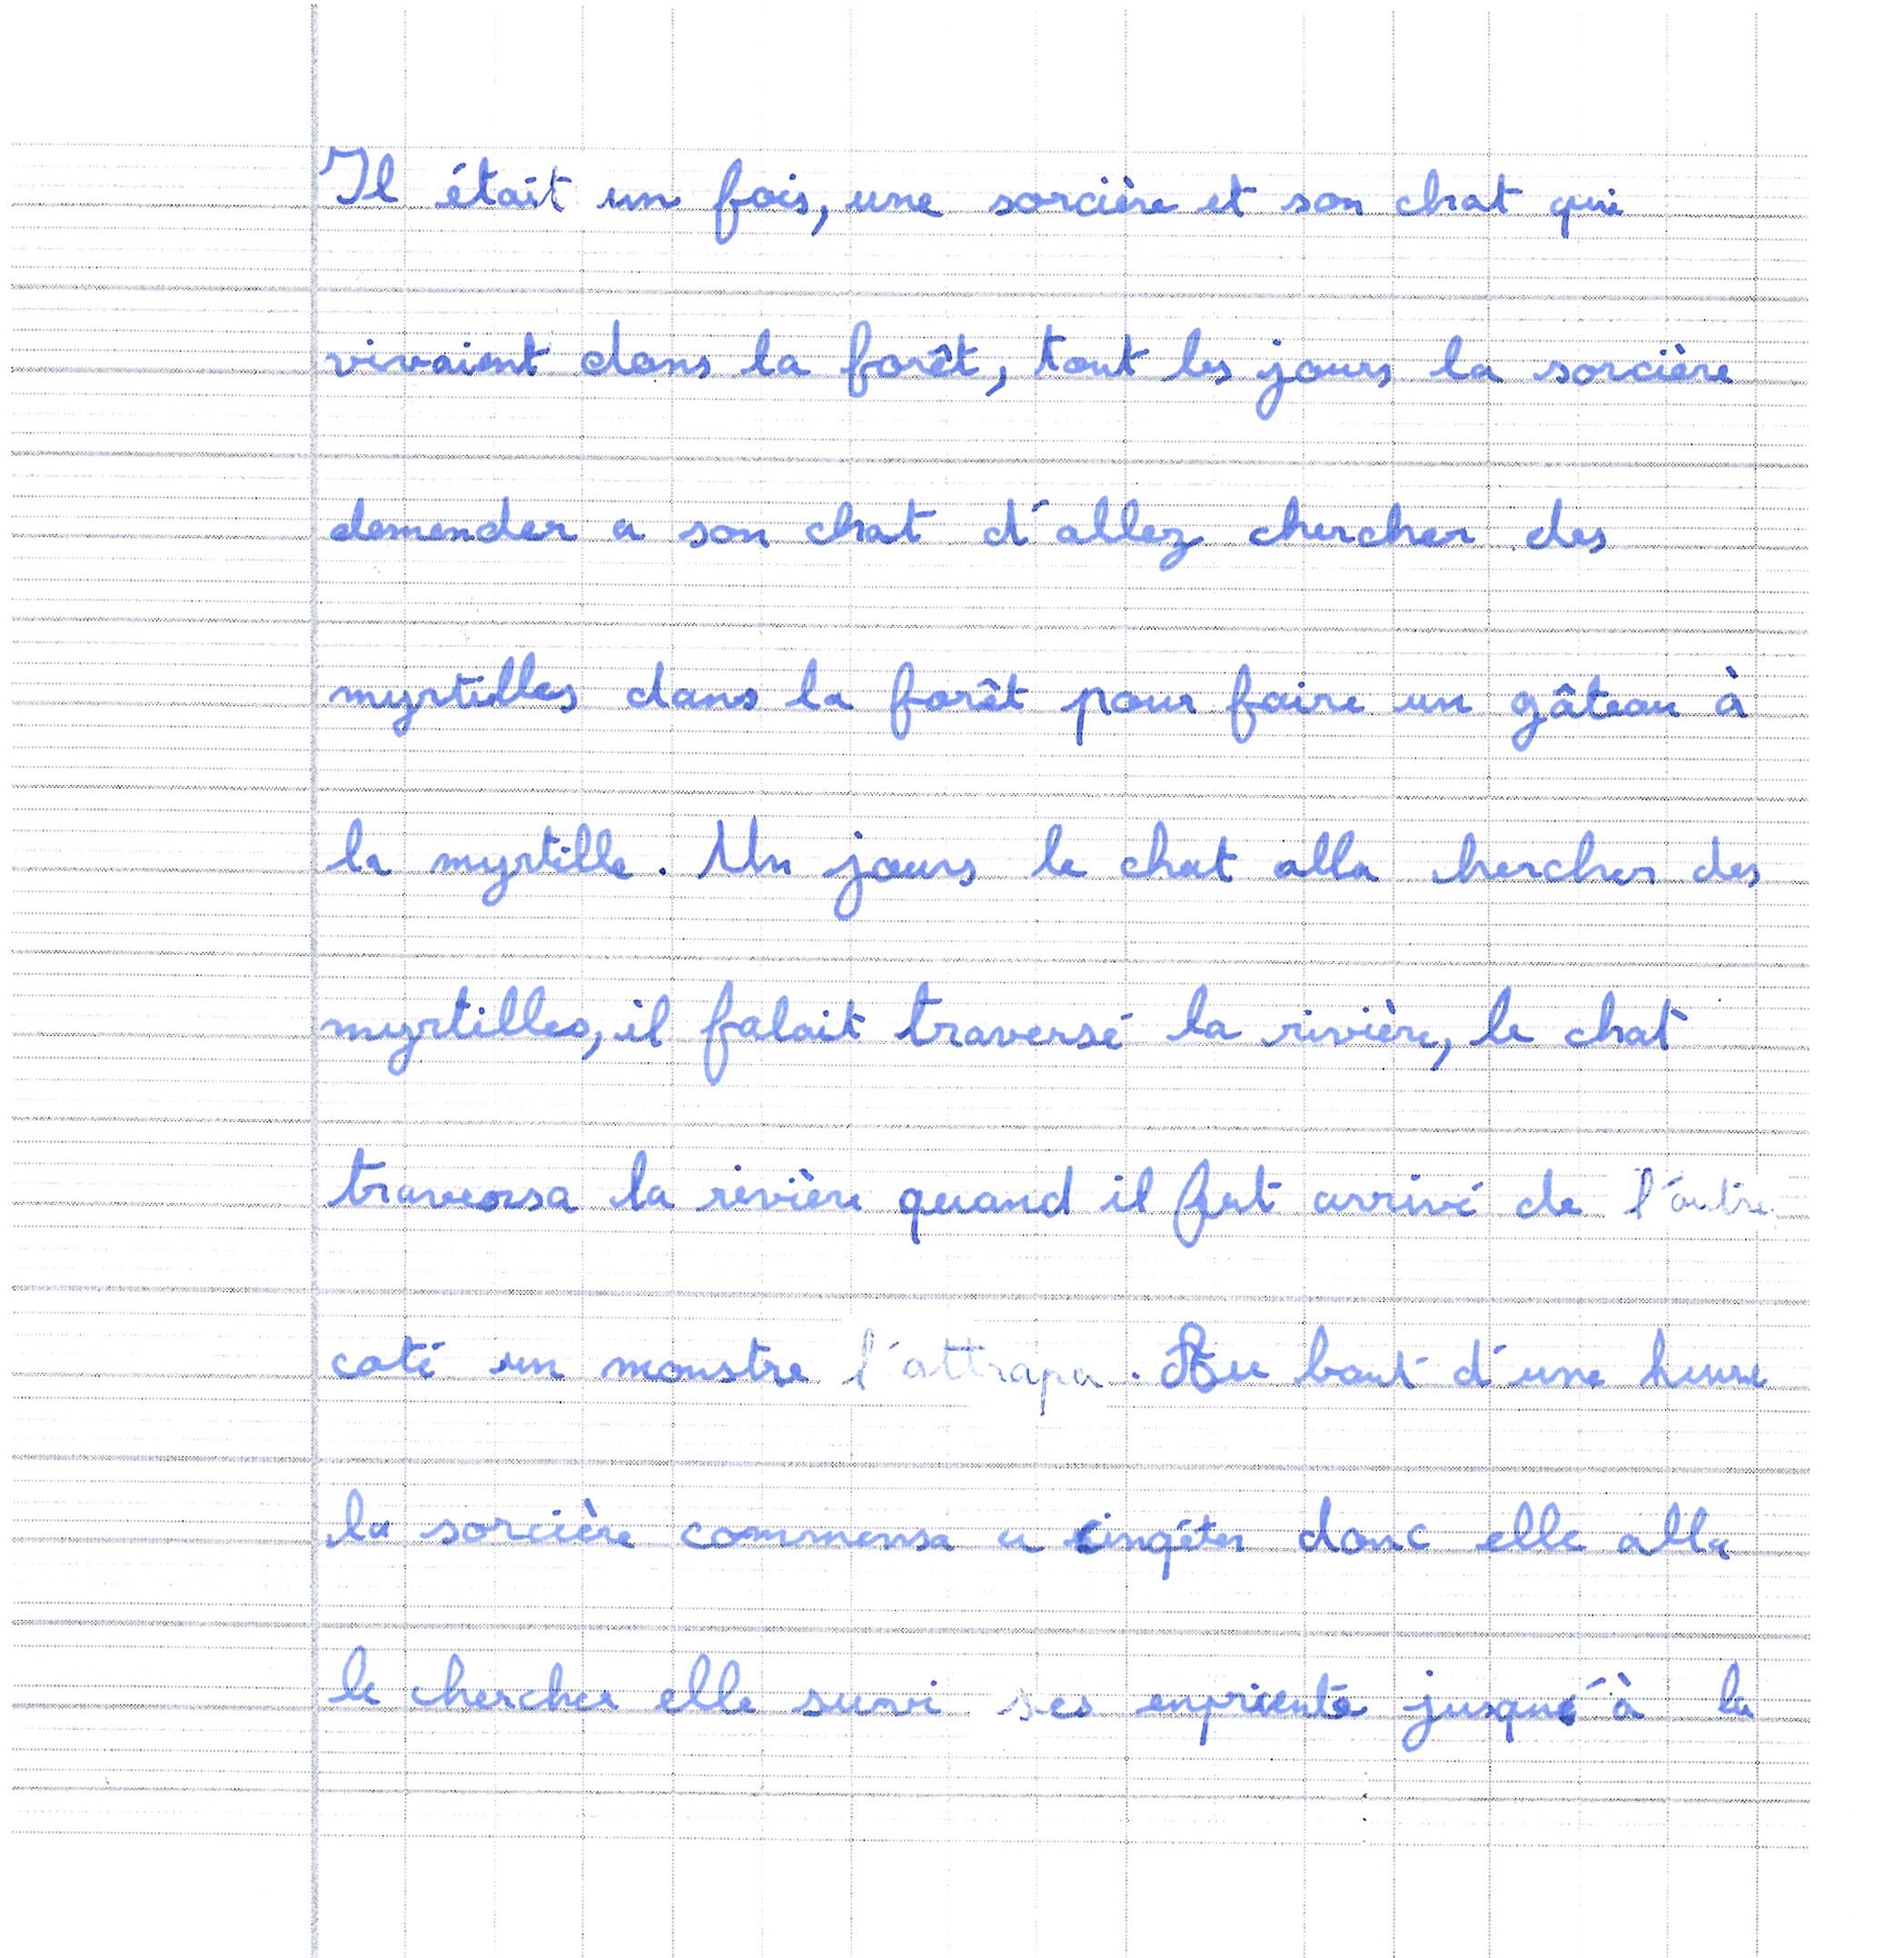 Il était un fois, une sorcière et son chat qui
vivaient dans la forêt, tout les jours la sorcière
demender a son chat d'allez chercher des
myrtilles dans la forêt pour faire un gâteau à
la myrtille. Un jours le chat alla hercher des
myrtilles, il falait traversé la rivière, le chat
traversa la rivière quand il fut arrivé de l'autre
coté un monstre l'attrapa. Au bout d'une heure
la sorcière commensa a donc elle alla
le chercher elle suivi ses jusqué'à la